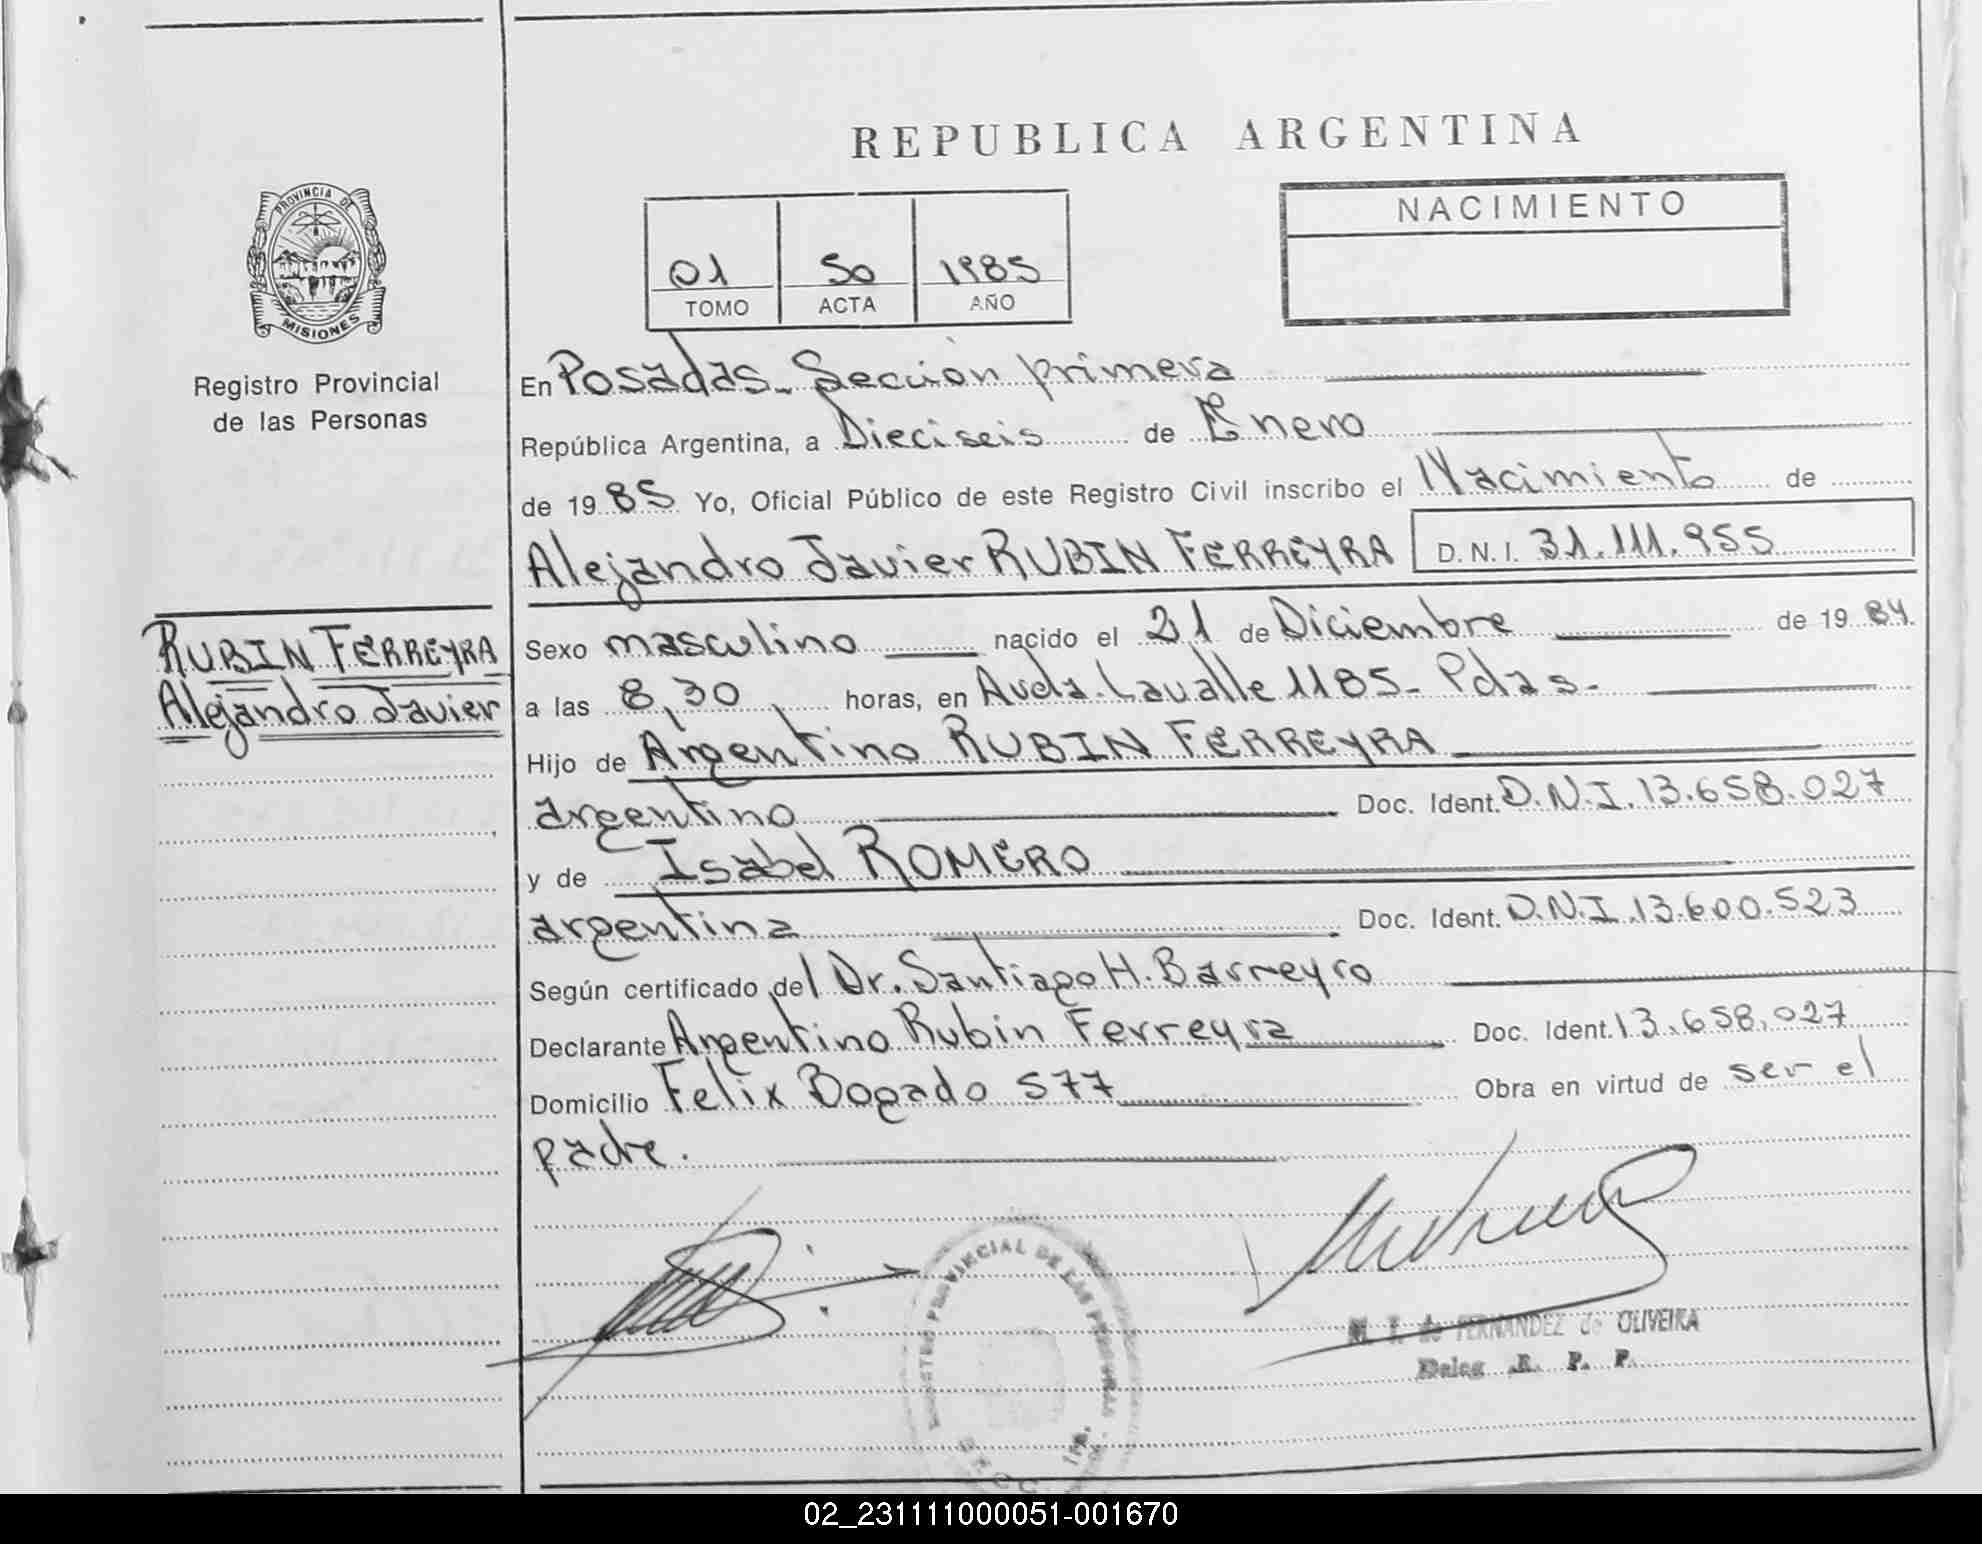 REPUBLICA ARGENTINA
PROVINCIA DE
MISIONES
Registro Provincial
de las Personas
01 50 1985
TOMO ACTA AÑO
NACIMIENTO
En Posadas - Sección primera
República Argentina, a Dieciseis de Enero
de 1985 Yo, Oficial Público de este Registro Civil inscribo el Nacimiento de
Alejandro Javier RUBIN FERREYRA D.N.I. 31.111.955
RUBIN FERREYRA
Alejandro Javier
Sexo masculino nacido el 21 de Diciembre de 1984.
a las 8,30 horas, en Avda. Lavalle 1185 - Pdas -
Hijo de Argentino RUBIN FERREYRA
argentino Doc. Ident. D.N.I. 13.658.027
y de Isabel ROMERO
argentina Doc. Ident. D.N.I. 13.600.523
Según certificado del Dr. Santiago H. Barreyro
Declarante Argentino Rubin Ferreyra Doc. Ident. 13.658.027
Domicilio Felix Bogado 577 Obra en virtud de ser el
padre.
REGISTRO PROVINCIAL DE LAS PERSONAS
1ra.
M. I. de FERNANDEZ de OLIVEIRA
Deleg. R. P. P.
02_231111000051-001670